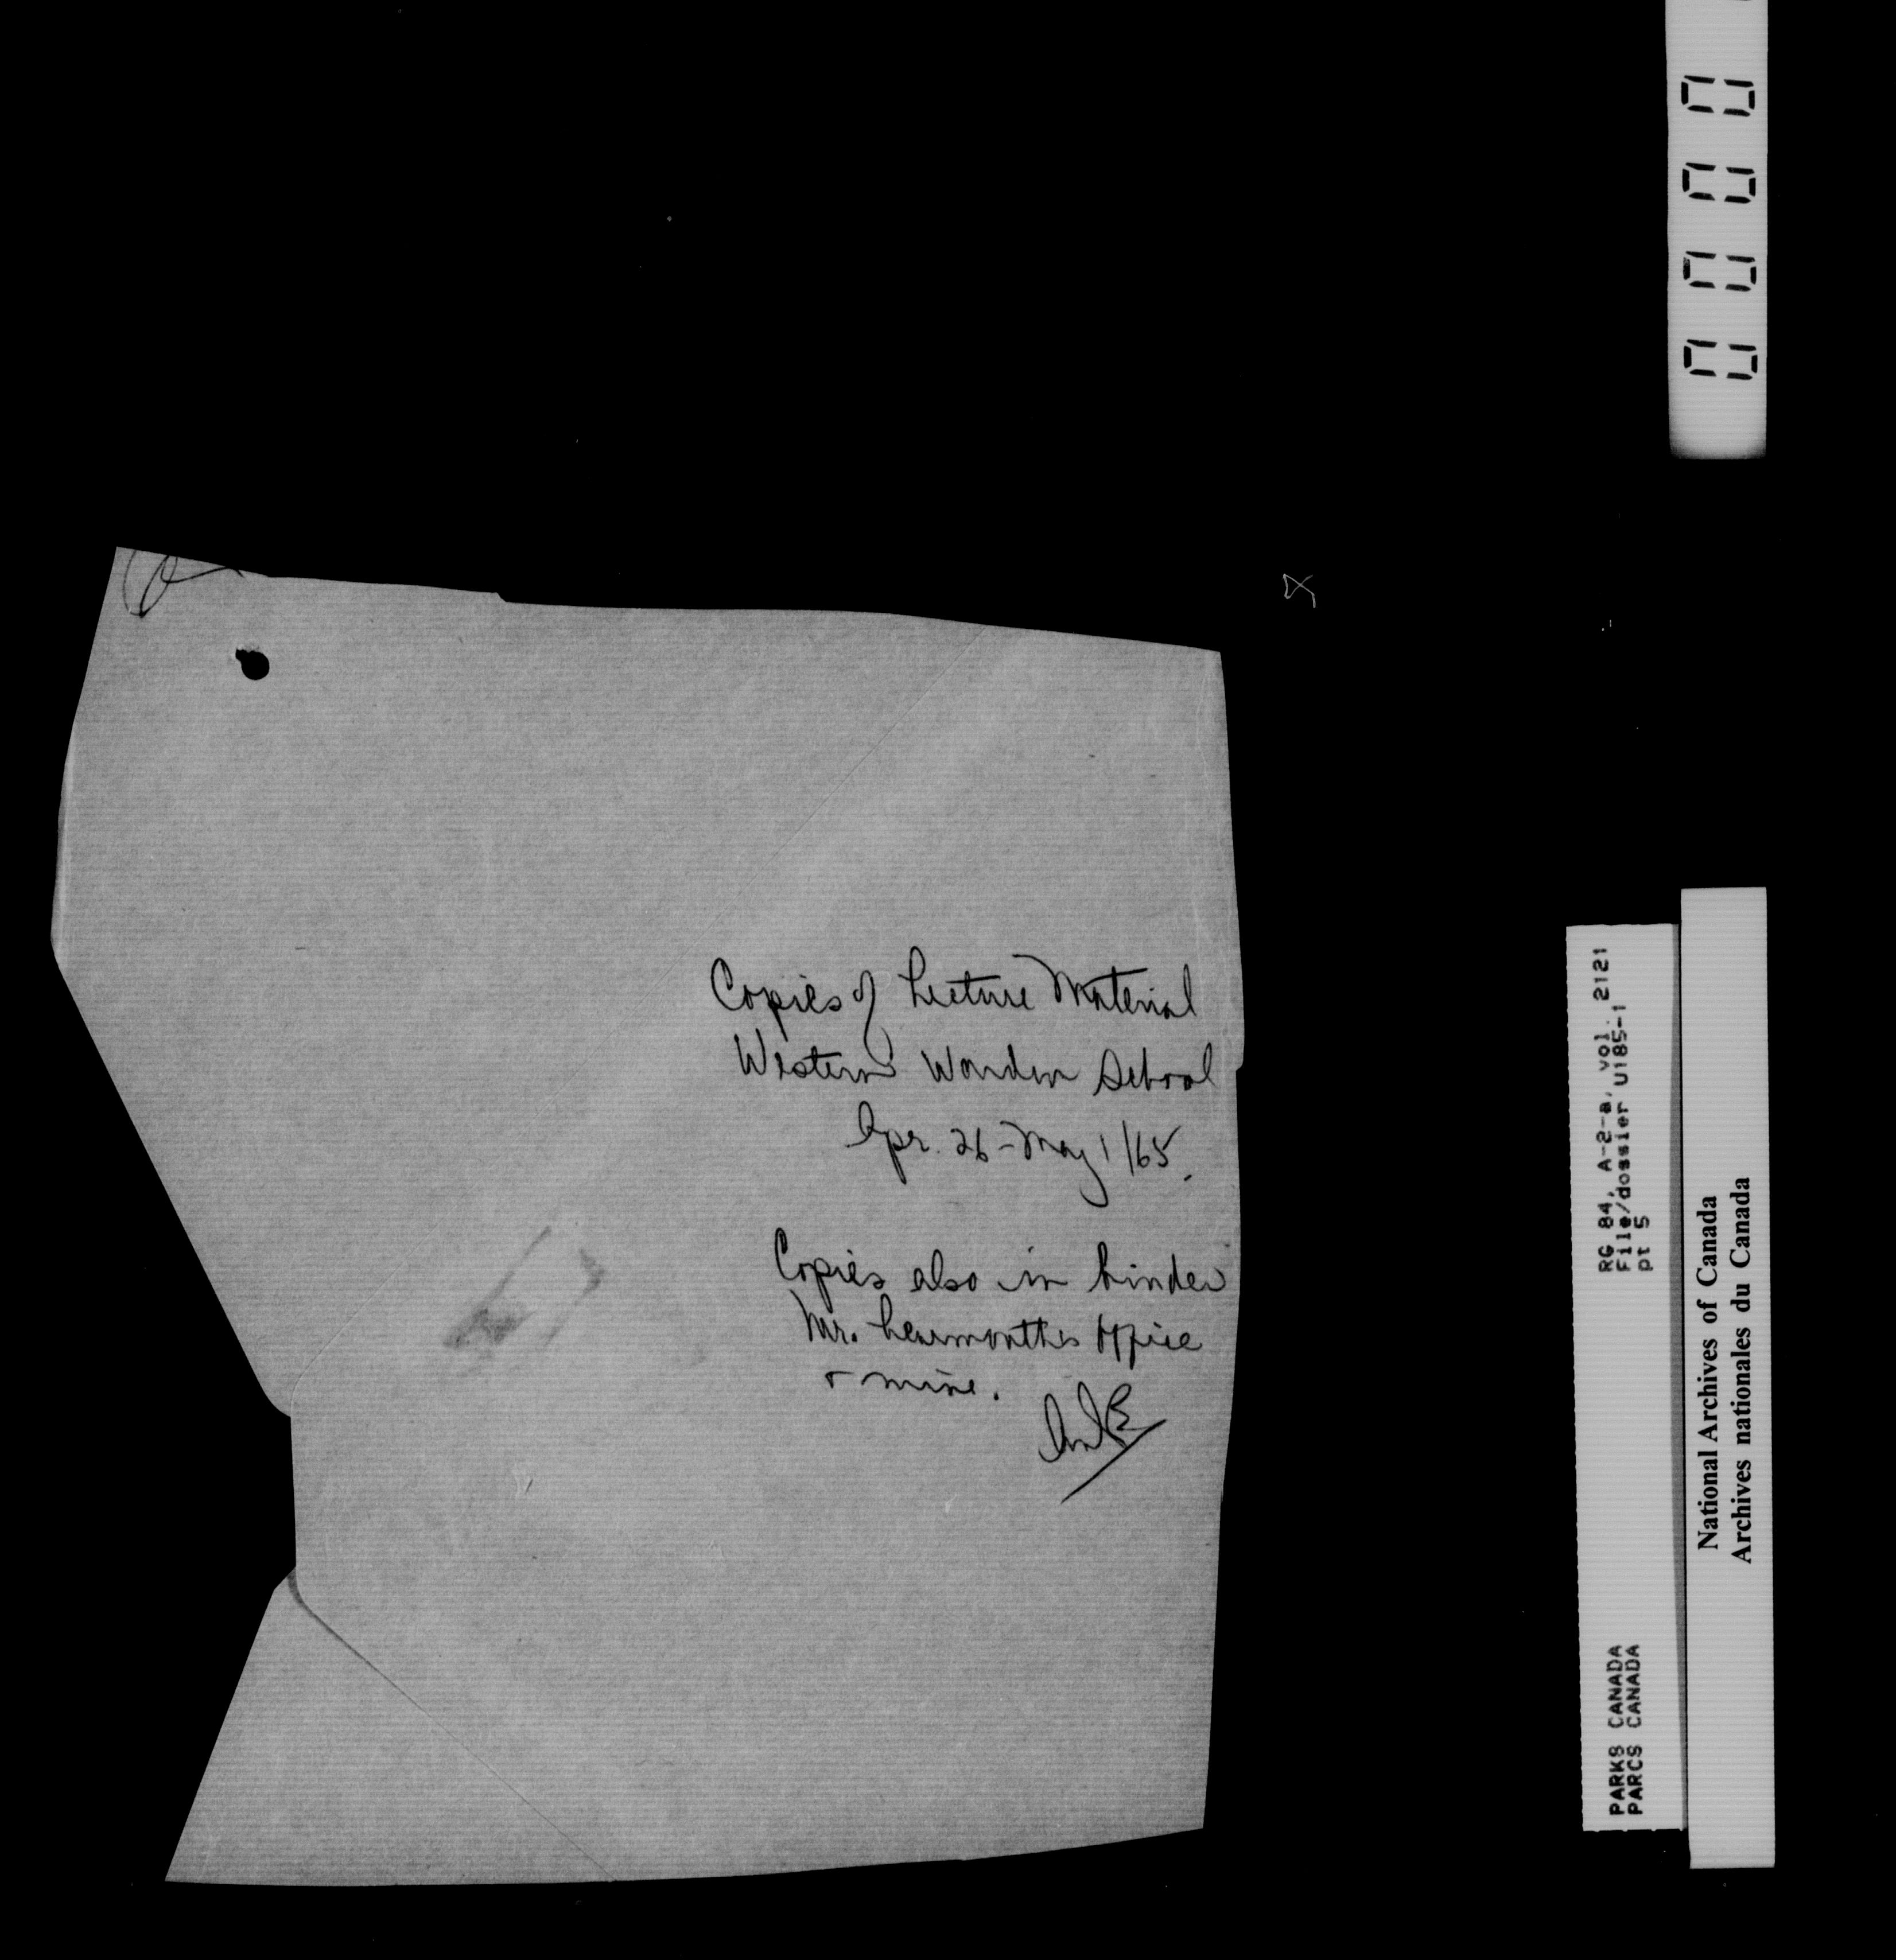 Copies of Lecture Material
Western Warden School
Apr. 26 - May 1/65.
Copies also in binder
Mr. Learmonth's Office
& mine.
0000
RG 84, A-2-a, vol. 2121
File/dossier U185-1
pt 5
PARKS CANADA
PARCS CANADA
National Archives of Canada
Archives nationales du Canada